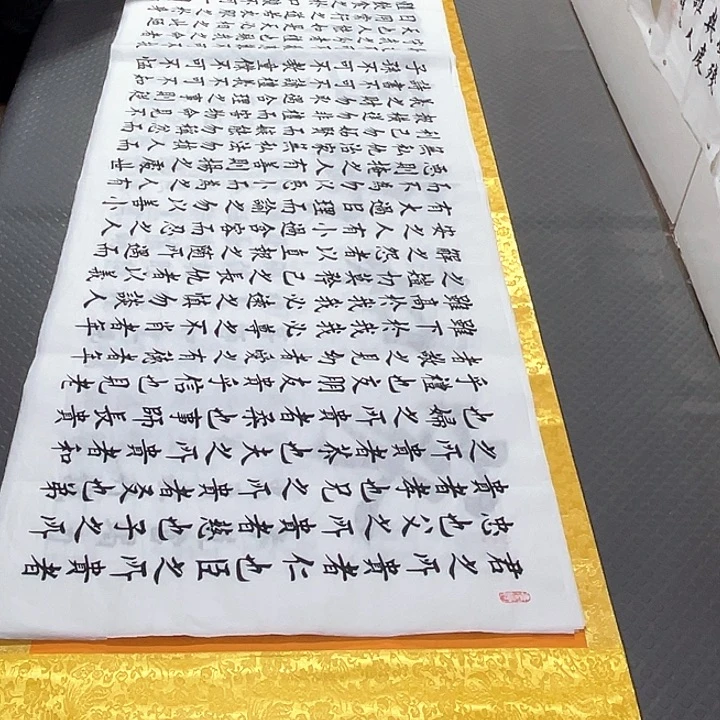 君之所貴者仁也臣之所貴者
忠也父之所貴者慈也子之所
貴者孝也兄之所貴者友也弟
之所貴者恭也夫之所貴者和
也婦之所貴者柔也事師長貴
乎禮也交朋友貴乎信也見老
者敬之見幼者愛之有德者年
雖下於我我必尊之不肖者年
雖高於我我必遠之慎勿談人
之短切莫矜己之長仇者以義
解之怨者以直報之隨所遇而
安之人有小過含容而忍之人
有大過以理而諭之勿以善小
而不為勿以惡小而為之人有
惡則掩之人有善則揚之處世
無私仇治家無私法勿損人而
利己勿妒賢而嫉能勿稱忿而
報橫逆勿非禮而害物命見不
義之財勿取遇合理之事則從
詩書不可不讀禮義不可不知
子孫不可不教童僕不可不恤